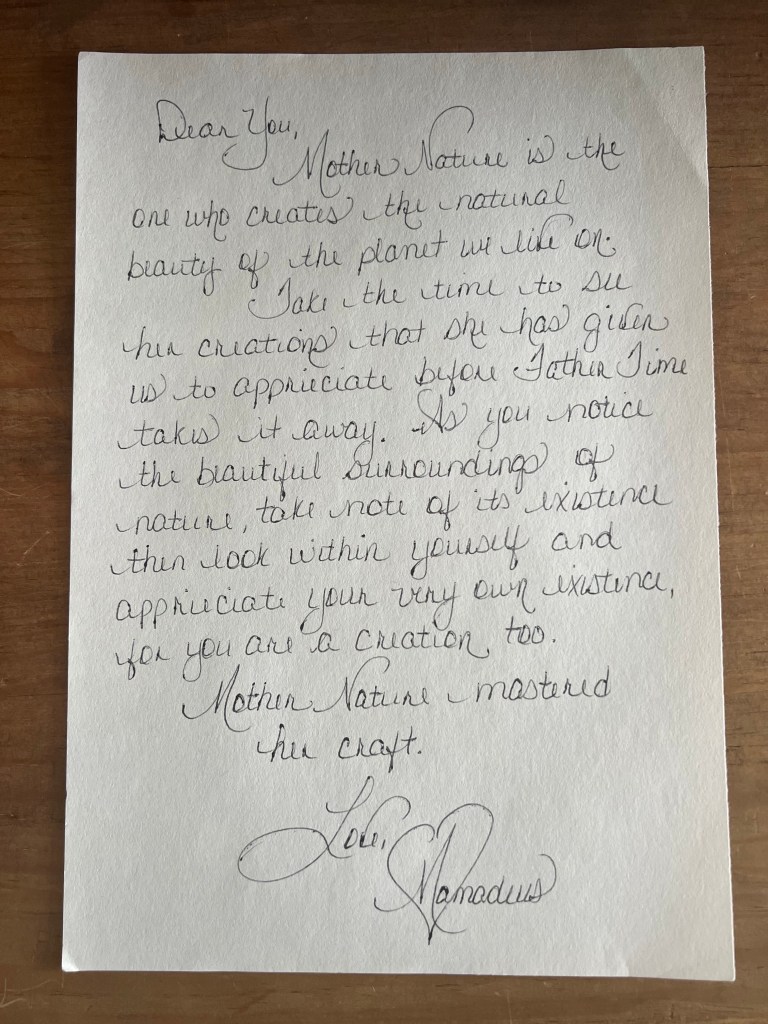 Dear You,
Mother Nature is the
one who creates the natural
beauty of the planet we live on.
Take the time to see
her creations that she has given
us to apprieciate before Father Time
takes it away. As you notice
the beautiful surroundings of
nature, take note of its existence
then look within yourself and
apprieciate your very own existence,
for you are a creation, too.
Mother Nature mastered
her craft.
Love,
Mamadeus